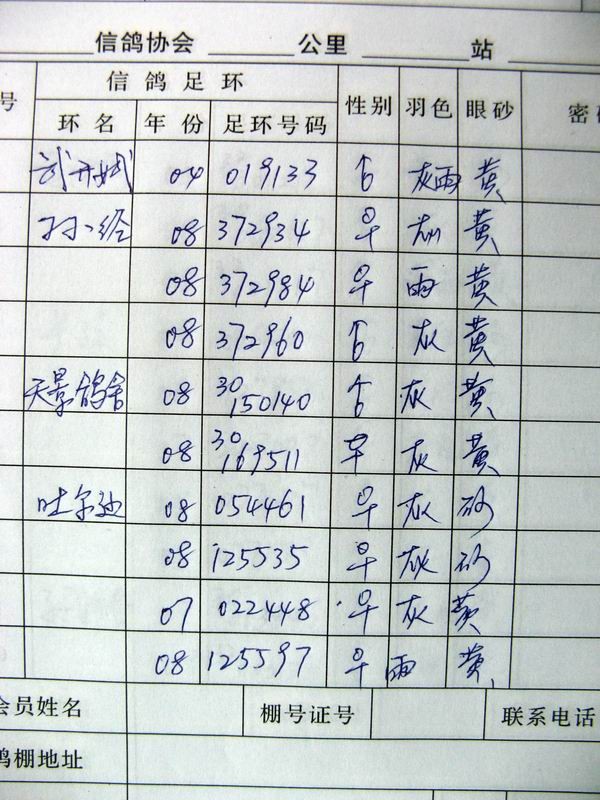 信鸽协会 公里 站
号 信鸽足环 性别 羽色 眼砂 密
环名 年份 足环号码
04 019133 ♂ 灰雨 黄
08 372934 ♀ 灰 黄
08 372984 ♀ 雨 黄
08 372960 ♂ 灰 黄
天景鸽舍 08 30 150140 ♂ 灰 黄
08 30 169511 ♀ 灰 黄
吐尔逊 08 054461 ♀ 灰 砂
08 125535 ♀ 灰 砂
07 022448 ♀ 灰 黄
08 125597 ♀ 雨 黄
会员姓名 棚号证号 联系电话
鸽棚地址